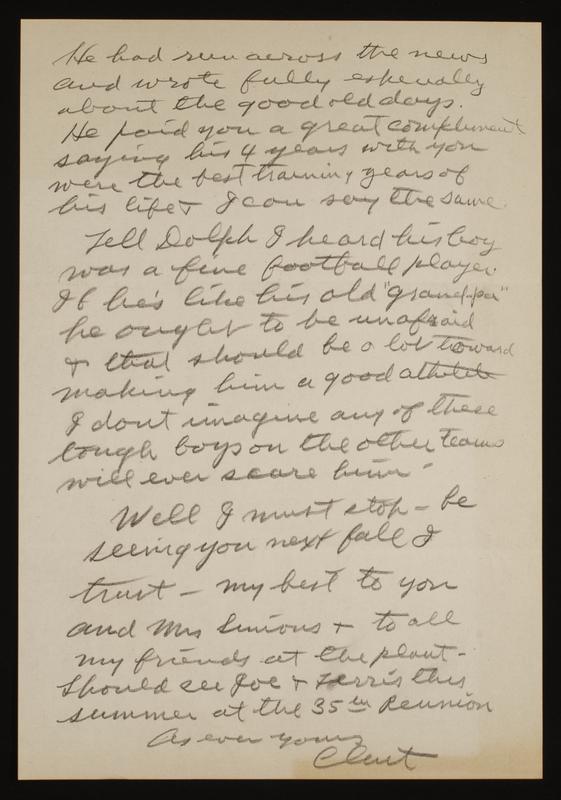 He had run across the news
and wrote fully especially
about the good old days.
He paid you a great compliment
saying his 4 years with you
were the best training years of
his life & I can say the same.
Tell Dolph I heard his boy
was a fine football player
If he's like his old "grand-pa"
he ought to be unafraid
& that should be a lot toward
making him a good athlete
I dont imagine any of these
tough boys on the other teams
will ever scare him -
Well I must stop - be
seeing you next fall I
trust - my best to you
and Mrs Simons & to all
my friends at the plant -
Should see Joe & Ferris this
summer at the 35th Reunion
As ever yours
Clint